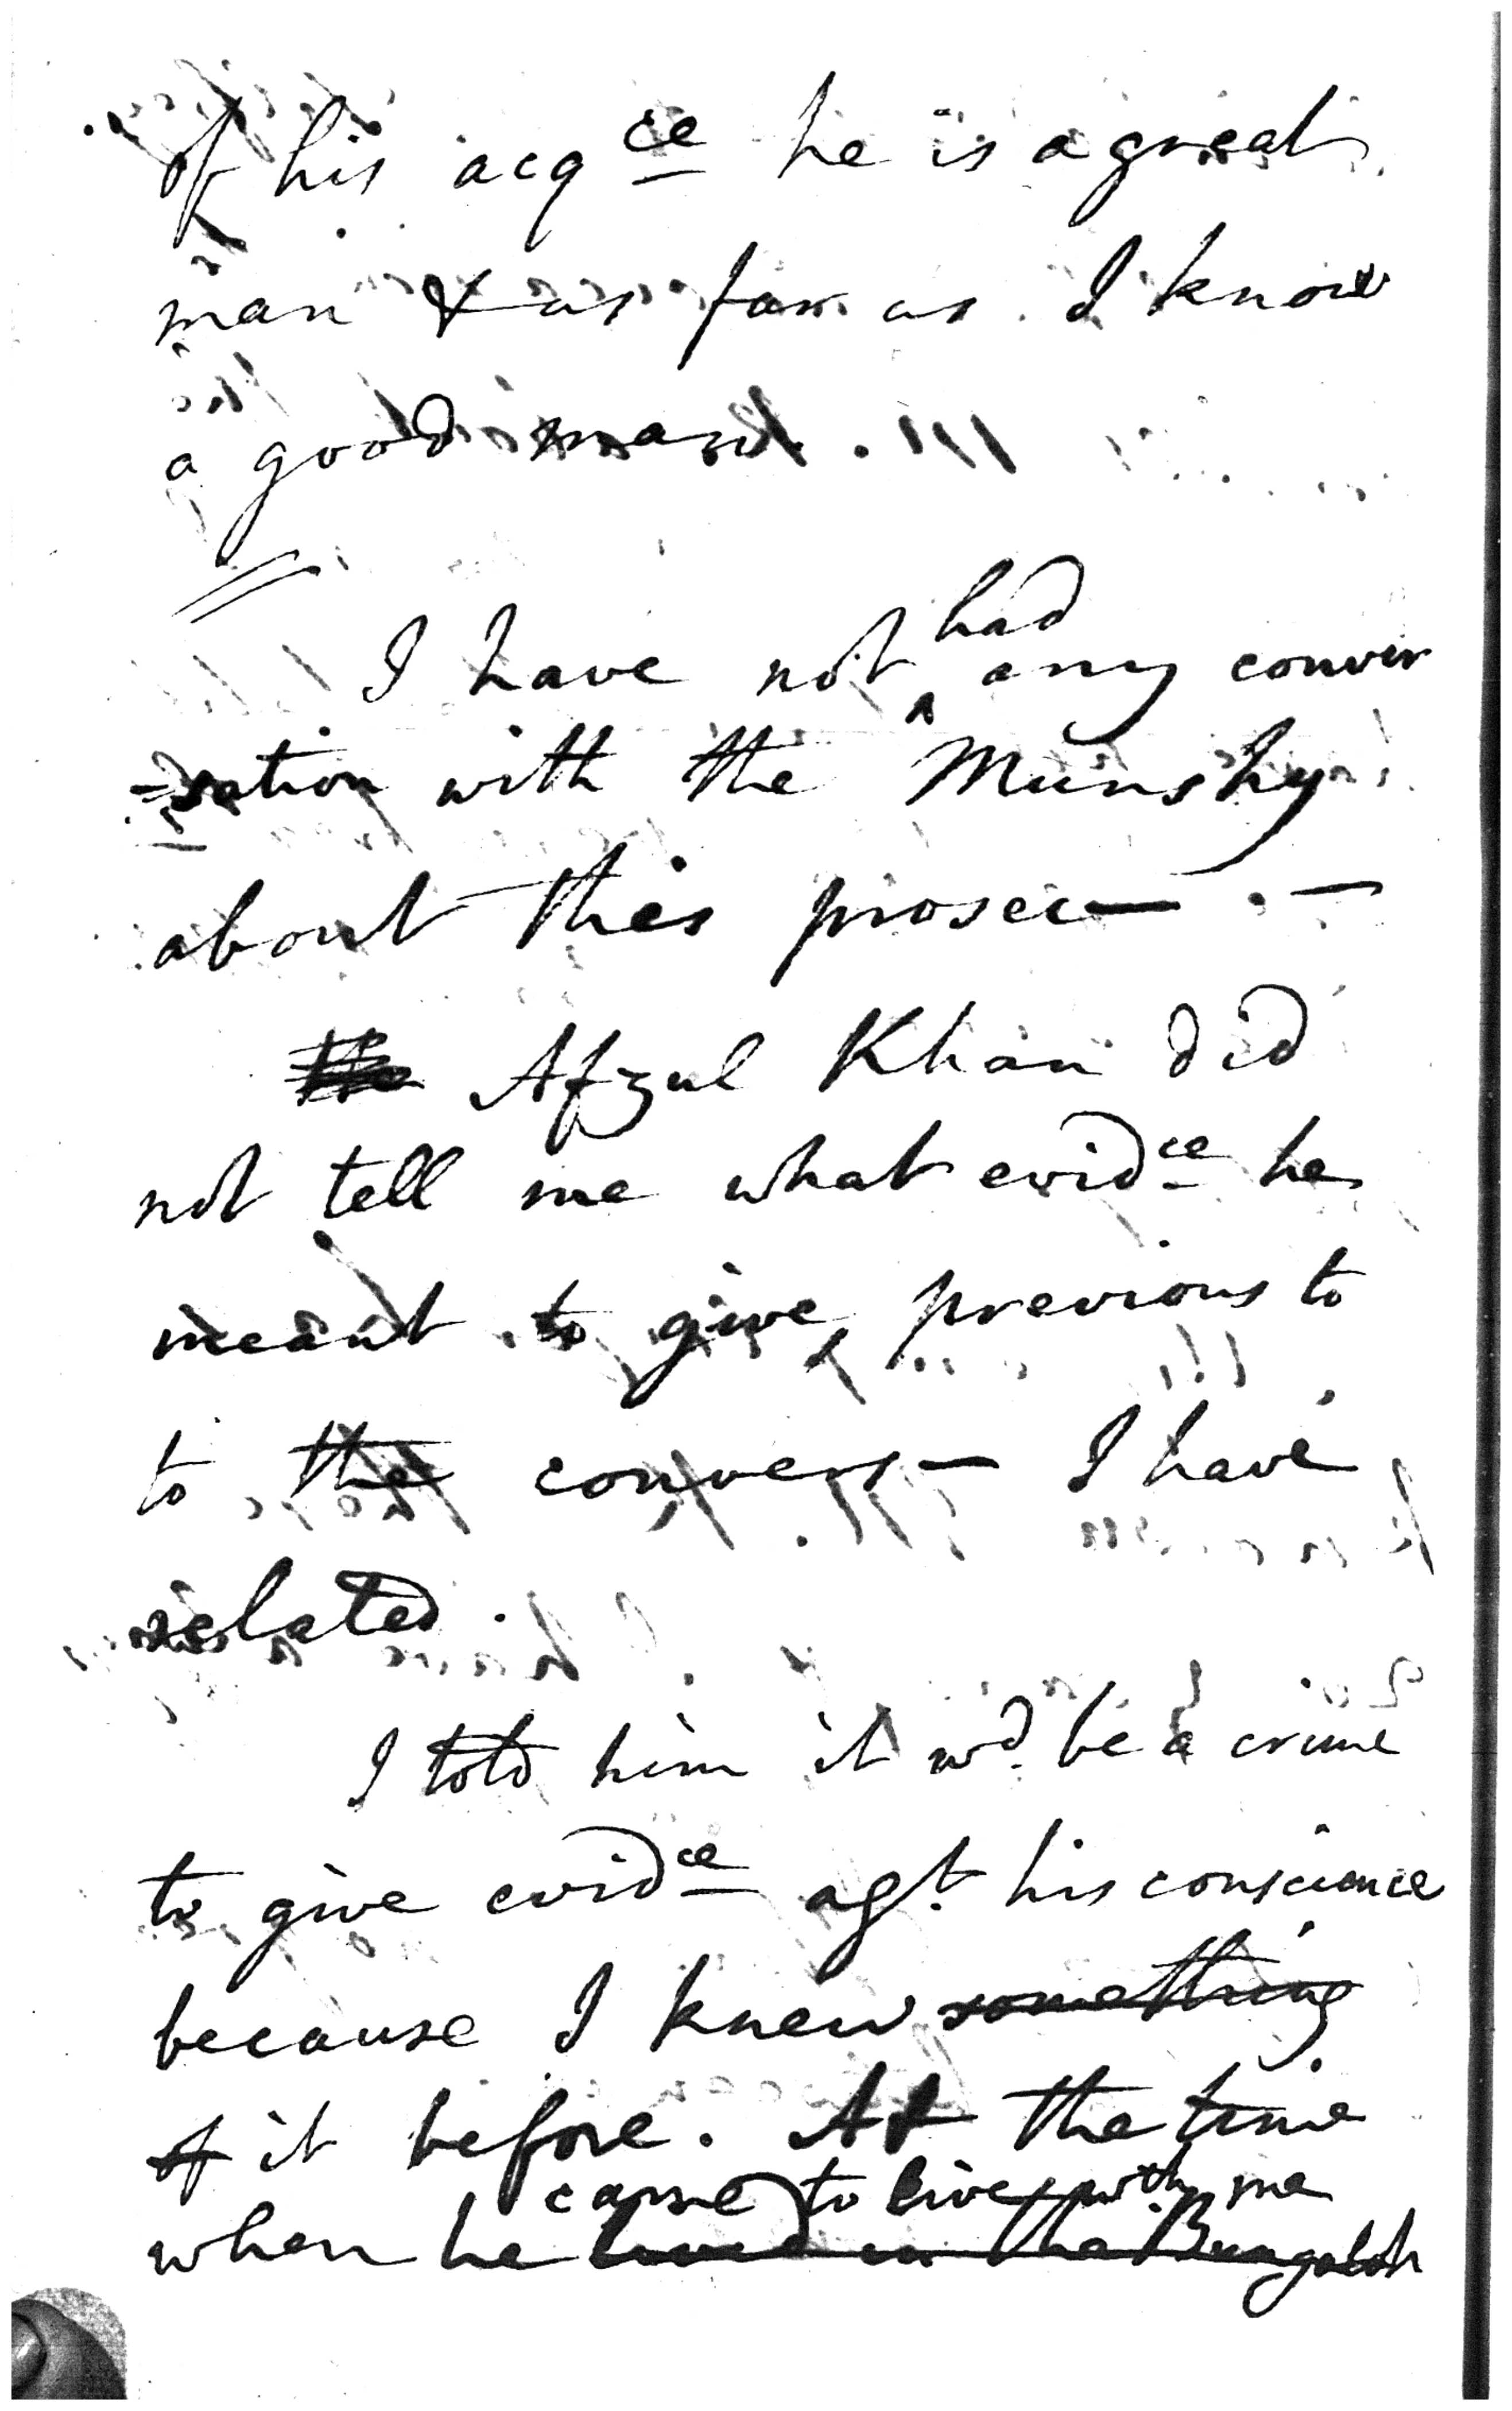 of his acqce he is a great
man & as far as I know
a good man.
I have not had any conver
=sation with the Munshy
about this prosec— . —
Afzul Khan did
not tell me what evidce he
meant to give previous to
to the convers— I have
related.
I told him it wd. be a crime
to give evidce agt. his conscience
because I knew something
of it before. At the time
came to live with me
when he lived in the Bungaloh